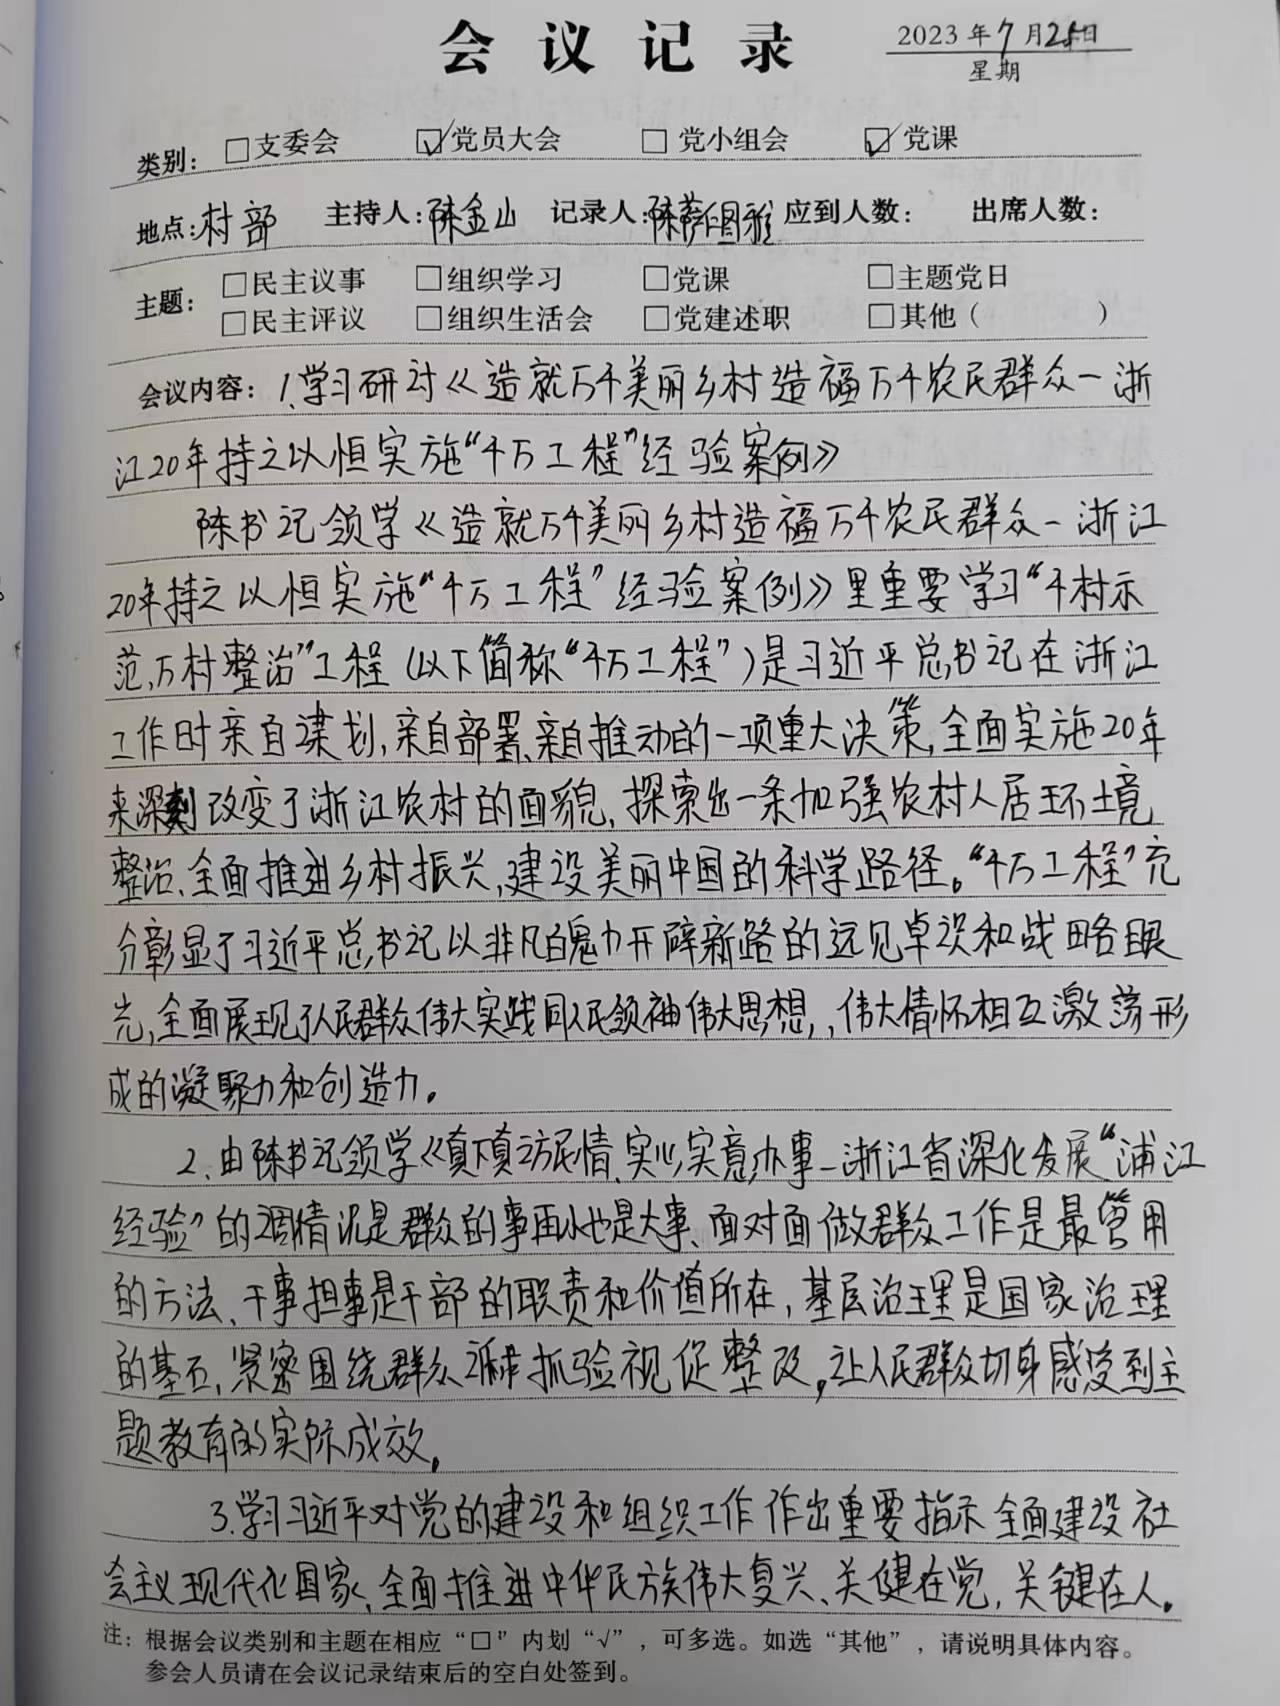 会议记录
2023年7月25日
星期
类别： □支委会 ☑党员大会 □党小组会 ☑党课
地点：村部 主持人：陈金山 记录人：陈萨日图雅 应到人数： 出席人数：
主题： □民主议事 □组织学习 □党课 □主题党日
□民主评议 □组织生活会 □党建述职 □其他（ ）
会议内容：1.学习研讨《造就万千美丽乡村造福万千农民群众一浙
江20年持之以恒实施“千万工程”经验案例》
陈书记领学《造就万千美丽乡村造福万千农民群众一浙江
20年持之以恒实施“千万工程”经验案例》里重要学习“千村示
范,万村整治”工程(以下简称“千万工程”)是习近平总书记在浙江
工作时亲自谋划,亲自部署、亲自推动的一项重大决策,全面实施20年
来深刻改变了浙江农村的面貌,探索出一条加强农村人居环境
整治、全面推进乡村振兴,建设美丽中国的科学路径。“千万工程”充
分彰显了习近平总书记以非凡魄力开辟新路的远见卓识和战略眼
光,全面展现了人民群众伟大实践同人民领袖伟大思想,,伟大情怀相互激荡形
成的凝聚力和创造力。
2.由陈书记领学《真下真访民情、实心实意办事一浙江省深化发展“浦江
经验”的调情况是群众的事再小也是大事、面对面做群众工作是最管用
的方法、干事担事是干部的职责和价值所在,基层治理是国家治理
的基石,紧密围绕群众 抓验视促整改,让人民群众切身感受到主
题教育的实际成效。
3.学习习近平对党的建设和组织工作作出重要指示全面建设社
会主义现代化国家、全面推进中华民族伟大复兴、关健在党,关键在人。
注：根据会议类别和主题在相应“□”内划“√”，可多选。如选“其他”，请说明具体内容。
参会人员请在会议记录结束后的空白处签到。